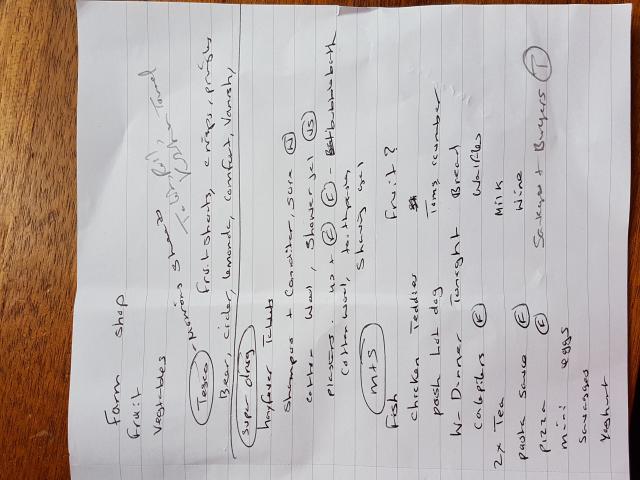 Farm Shop
Fruit
Vegtables
Toilet Roll,
Kitchen Towel
Tesco - Morrisons
Fruit shoots, crisps, pringles
Beer, cider, lemonda, comfort, vanish,
Super drug
hayfever Tablets
Shampoo + Conditer, Sure (N)
cotten Wool, Shower gel (NS)
plasters. (E) - bubble bath
cotton wool, toothpaste,
Shaving gel
M+S
Fish Fruit?
chicken Teddies
posh hot dog Toms cucumber
W- Dinner Tonight Bread
Catapilers (F) Waffles
2x Tea Milk
pasta sauce (F) Wine
pizza (F) Sausages + Burgers (T)
mini eggs
Sausages
Yoghurt